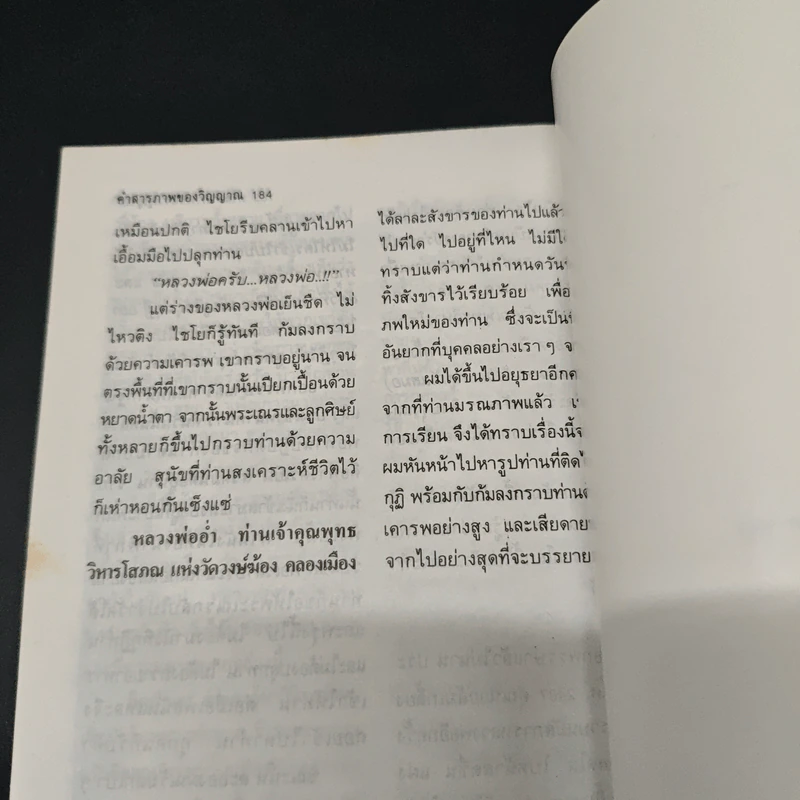 คำสารภาพของวิญญาณ 184
เหมือนปกติ ไชโยรีบคลานเข้าไปหา
เอื้อมมือไปปลุกท่าน
“หลวงพ่อครับ...หลวงพ่อ..!!”
แต่ร่างของหลวงพ่อเย็นชืด ไม่
ไหวติง ไชโยก็รู้ทันที ก้มลงกราบ
ด้วยความเคารพ เขากราบอยู่นาน จน
ตรงพื้นที่ที่เขากราบนั้นเปียกเปื้อนด้วย
หยาดน้ำตา จากนั้นพระเณรและลูกศิษย์
ทั้งหลายก็ขึ้นไปกราบท่านด้วยความ
อาลัย สุนัขที่ท่านสงเคราะห์ชีวิตไว้
ก็เห่าหอนกันเซ็งแซ่
หลวงพ่ออ่ำ ท่านเจ้าคุณพุทธ
วิหารโสภณ แห่งวัดวงษ์ฆ้อง คลองเมือง
ได้ลาละสังขารของท่านไปแล้ว
ไปที่ใด ไปอยู่ที่ไหน ไม่มี
ทราบแต่ว่าท่านกำหนดวัน
ทิ้งสังขารไว้เรียบร้อย เพื่อ
ภพใหม่ของท่าน ซึ่งจะเป็น
อันยากที่บุคคลอย่างเรา ๆ
ผมได้ขึ้นไปอยุธยาอีก
จากที่ท่านมรณภาพแล้ว
การเรียน จึงได้ทราบเรื่องนี้
ผมหันหน้าไปหารูปท่านที่ติด
กุฏิ พร้อมกับก้มลงกราบท่าน
เคารพอย่างสูง และเสียดาย
จากไปอย่างสุดที่จะบรรยาย